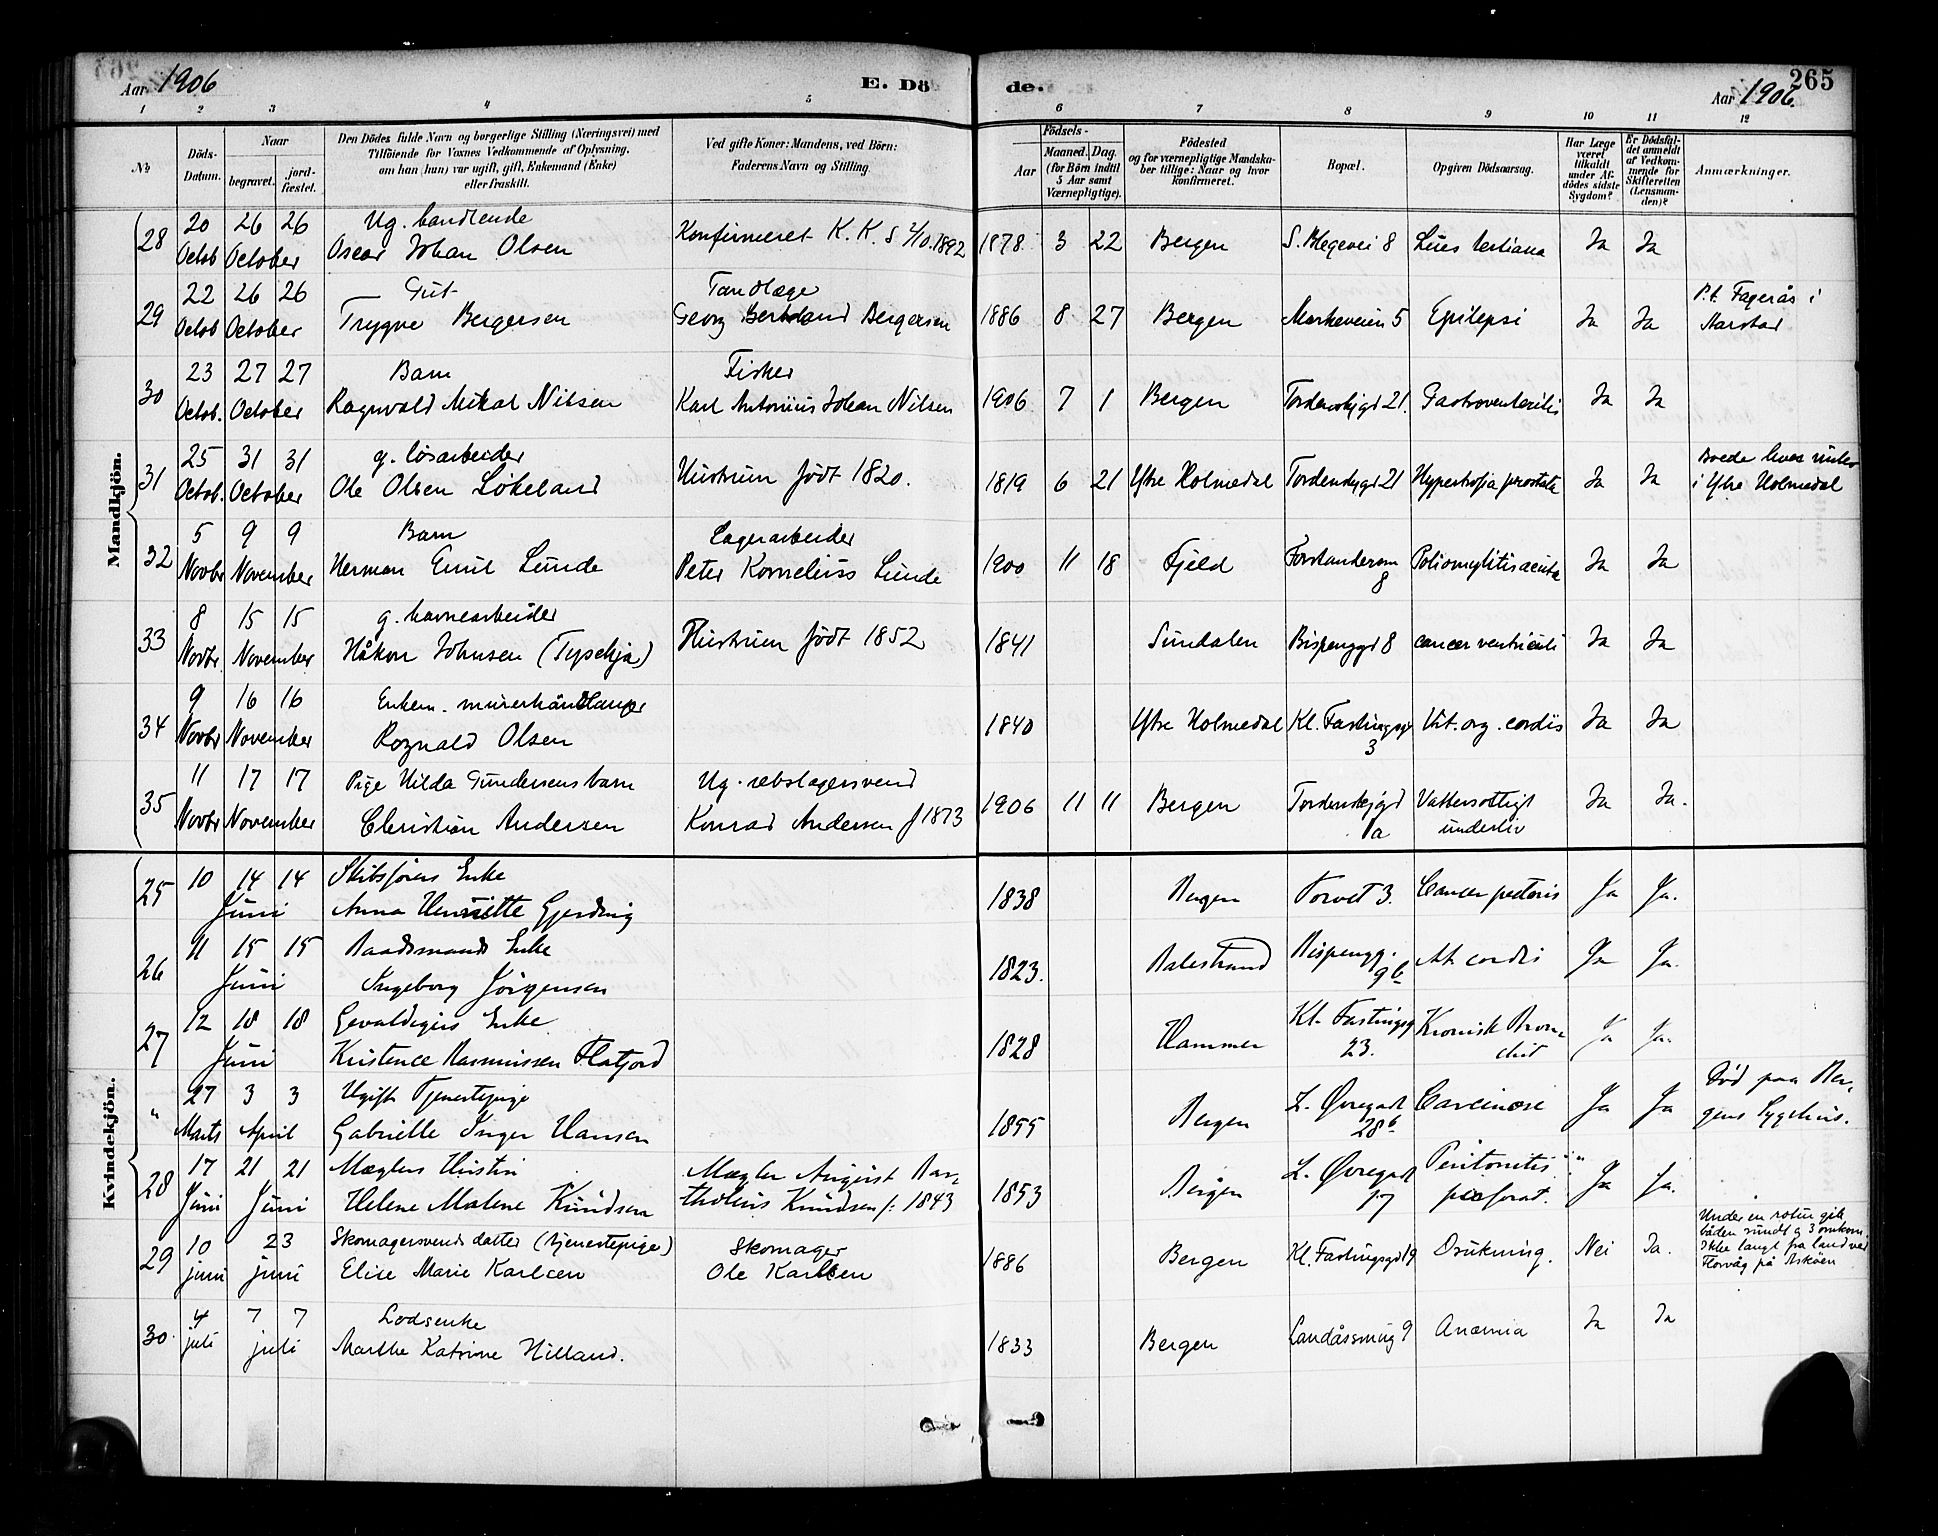 Aar 1906
E. Dö
de.
265
Aar 1906
1 2 3 4 5 6 7 8 9 10 11 12
No
Döds-
Datum.
Naar
begravet.
jord-
fæstet.
Den Dödes fulde Navn og borgerlige Stilling (Næringsvei) med
Tilföiende for Voxnes Vedkommende af Oplysning,
om han (hun) var ugift, gift, Enkemand (Enke)
eller fraskilt.
Ved gifte Koner: Mandens, ved Börn:
Faderens Navn og Stilling.
Födsels-
Aar
Maaned. Dag.
(for Börn indtil
5 Aar samt
Værnepligtige).
Födested
og for værnepligtige Mandska-
ber tillige: Naar og hvor
konfirmeret.
Bopæl.
Opgiven Dödsaarsag.
Har Læge
været
tilkaldt
under Af-
dödes sidste
Sygdom?
Er Dödsfal-
det anmeldt
af Vedkom-
mende for
Skifteretten
(Lensman-
den)?
Anmærkninger.
Mandkjön.
28 20 26 26 Ug. handlende
Octob October Oscar Johan Olsen Konfirmeret K. K. 1892 1878 3 22 Bergen S. Blegevei 8 Lues tertiana Ja Ja
29 22 26 26 Gut Tandlæge
Octob October Trygve Bergersen Georg Bergersen 1886 8 27 Bergen Markeveien 5 Epilepsi Ja Ja P.t. Fagerås i
Aarstad
30 23 27 27 Barn Fisker
Octob. October Ragnvald Mikal Nilsen Karl Antonius Johan Nilsen 1906 7 1 Bergen Tordenskjgd 21. Gastroenteritis Ja Ja
31 25 31 31 g. løsarbeider
Octob. October Ole Olsen Løkeland Hustrum født 1820. 1819 6 21 Ytre Holmedal Tordenskjgd 21 Hypertrofia prostata Ja Ja
i Ytre Holmedal
32 5 9 9 Barn Lagerarbeider
Novbr November Herman Emil Lunde Peter Kornelius Lunde 1900 11 18 Fjeld 8 Poliomylitis acuta Ja Ja
33 8 15 15 g. havnearbeider
Novbr November Håkon Johnsen (Tysekja) Hustrum født 1852 1841 Sundalen Bispenggd 8 cancer ventriculi Ja Ja
34 9 16 16 Enkem. murerhåndlanger
Novbr November Rognald Olsen 1840 Ytre Holmedal Kl. Fastingsgd
3 Vit. org. cordis Ja Ja
35 11 17 17 Pige Hilda Gundersens barn Ug. rebslagersvend
Novbr November Christian Andersen Konrad Andersen f 1873 1906 11 11 Bergen Tordenskjgd
1a Vattersottigt
underliv Ja Ja.
Kvindekjön.
25 10 14 14 Skibsførers Enke
Juni Anna Henriette Gjerding 1838 Bergen Torvet 3. Cancer pectoris Ja Ja.
26 11 15 15 Baadsmands Enke
Juni Ingeborg Jörgensen 1823. Balestrand Bispengg.
9b At. cordis Ja Ja.
27 12 18 18 Gevaldigers Enke
Juni Kristence Rasmussen Flatjord 1828 Hammer Kl. Fastingsg
23. Kronisk Bron-
chit Ja Ja.
" 27 3 3 Ugift Tjenestepige
Marts April Gabrielle Inger Hansen 1855 Bergen L. Øvregade
28b Carcinose Ja Ja Död paa Ber-
gens Sygehus.
28 17 21 21 Mæglers Hustru Mægler August Bar-
Juni Juni Helene Malene Knudsen tholius Knudsen f: 1843 1853 Bergen L. Øvregade
17 Peritonitis
perforat. Ja Ja.
29 10 23 Skomagersvends datter (tjenestepige) Skomager
juni juni Elise Marie Karlsen Ole Karlsen 1886 Bergen Kl. Fastingsgd 19 Drukning. Nei Ja. Under en rotur gik
båden rundt og 3 omkom.
Ikke langt fra land ved
Florvåg på Askøen
30. 4 7 7 Lodsenke
juli juli Marthe Katrine Hilland. 1833 Bergen Landåssmug 9 Anæmia Ja Ja